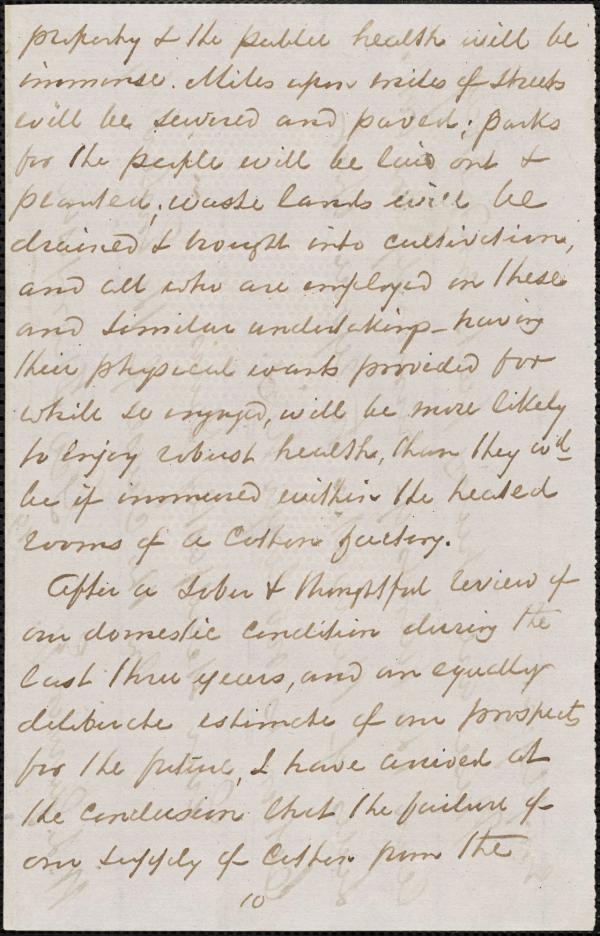 property & the public health will be
immense. Miles upon miles of streets
will be sewered and paved; parks
for the people will be laid out &
planted; waste lands will be
drained & brought into cultivation,
and all who are employed on these
and similar undertakings - having
their physical wants provided for
while so engaged, will be more likely
to enjoy robust health, than they wd
be if immured within the heated
rooms of a Cotton factory.
After a sober & thoughtful review of
our domestic condition during the
last three years, and an equally
deliberate estimate of our prospects
for the future, I have arrived at
the conclusion that the failure of
our supply of Cotton from the
10